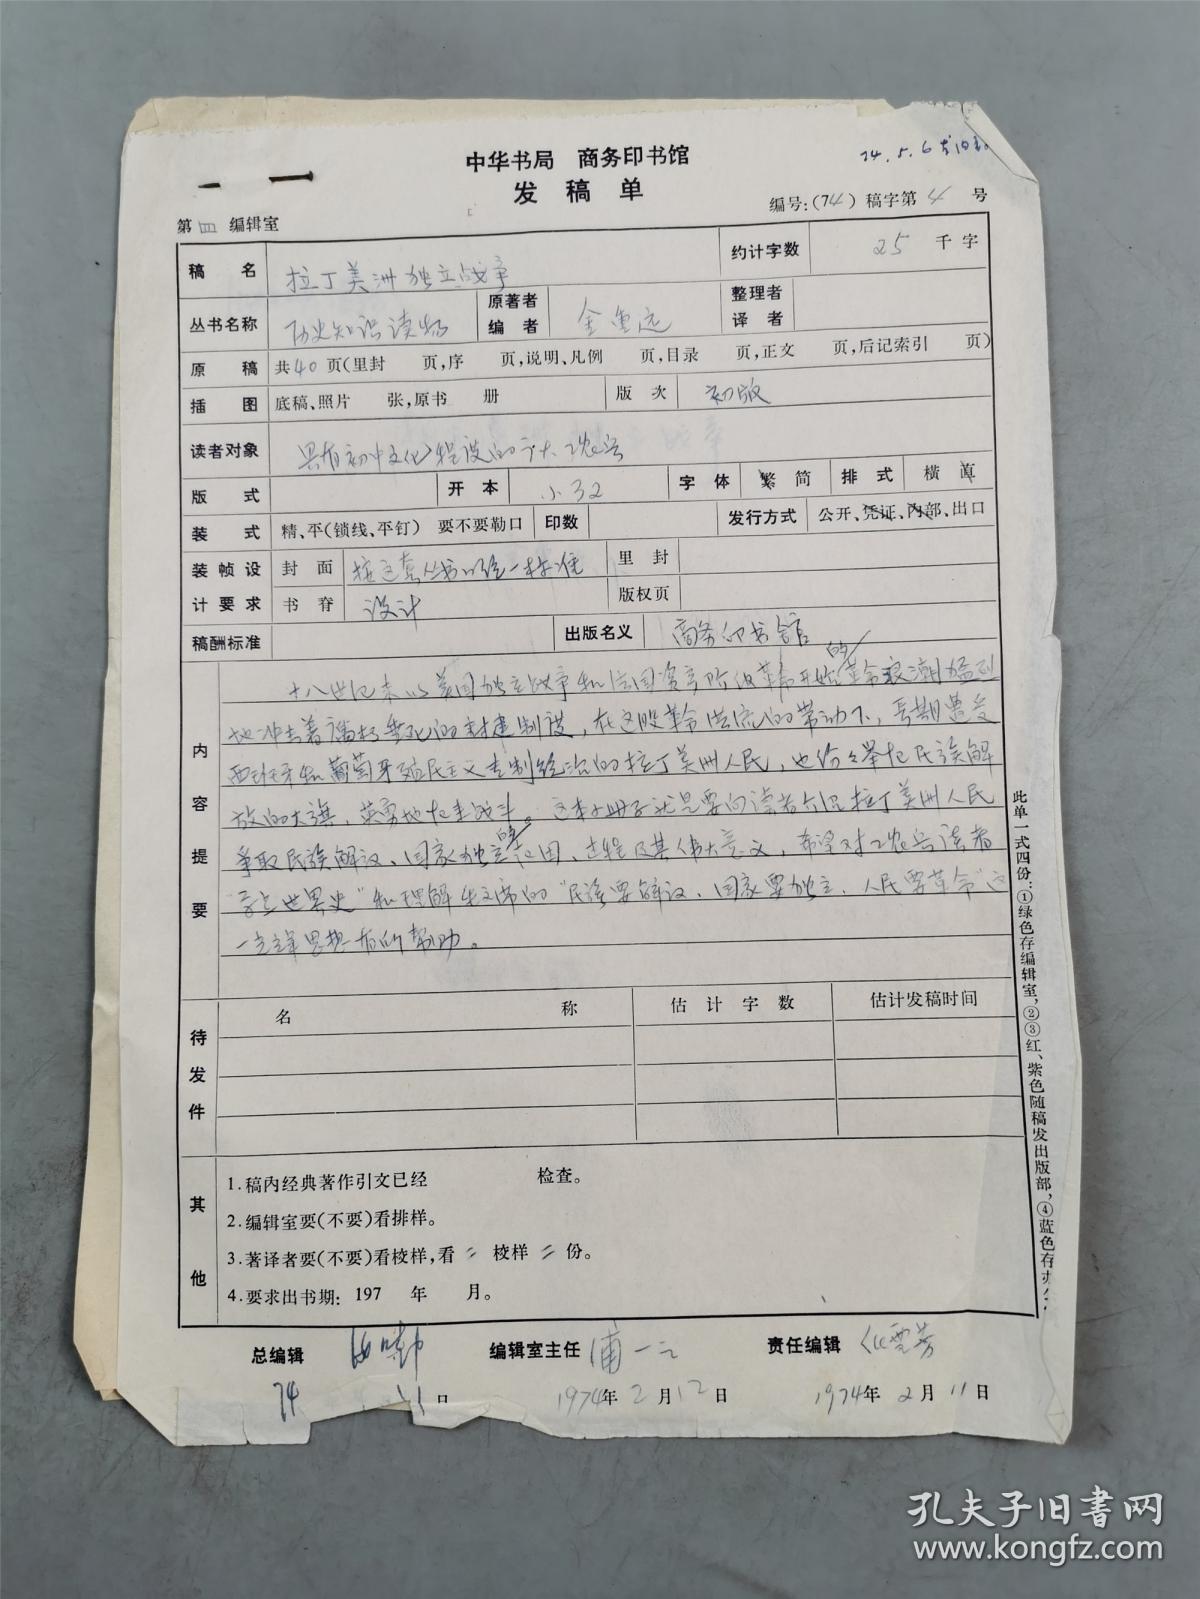 中华书局 商务印书馆
74.5.6
发稿单
第四编辑室
编号:(74)稿字第4号
稿名 拉丁美洲独立战争 约计字数 25千字
丛书名称 历史知识读物 原著者 编者 金重远 整理者 译者
原稿 共40页(里封 页,序 页,说明、凡例 页,目录 页,正文 页,后记索引 页)
插图 底稿、照片 张,原书 册 版次 初版
读者对象 具有初中文化程度的广大工农兵
版式 开本 小32 字体 繁 简 排式 横 直
装式 精、平(锁线、平钉) 要不要勒口 印数 发行方式 公开、凭证、内部、出口
装帧设计要求 封面 按这套丛书的统一标准 里封
书脊 设计 版权页
稿酬标准 出版名义 商务印书馆
内容提要
十八世纪末以美国独立战争和法国资产阶级革命开始的革命浪潮猛烈
地冲击着腐朽垂死的封建制度,在这股革命洪流的带动下,长期遭受
西班牙和葡萄牙殖民主义专制统治的拉丁美洲人民,也纷纷举起民族解
放的大旗,英勇地起来战斗。这本小册子就是要向读者介绍拉丁美洲人民
争取民族解放、国家独立的起因、过程及其伟大意义,希望对工农兵读者
“学点世界史”和理解毛主席的“民族要解放、国家要独立、人民要革命”这
一光辉思想有所帮助。
待发件 名称 估计字数 估计发稿时间
其他
1.稿内经典著作引文已经 检查。
2.编辑室要(不要)看排样。
3.著译者要(不要)看校样,看 二 校样 二 份。
4.要求出书期: 197 年 月。
总编辑 编辑室主任 责任编辑
74 日 1974年2月12日 1974年2月11日
此单一式四份:①绿色存编辑室,②③红、紫色随稿发出版部,④蓝色存办公
孔夫子旧书网
www.kongfz.com